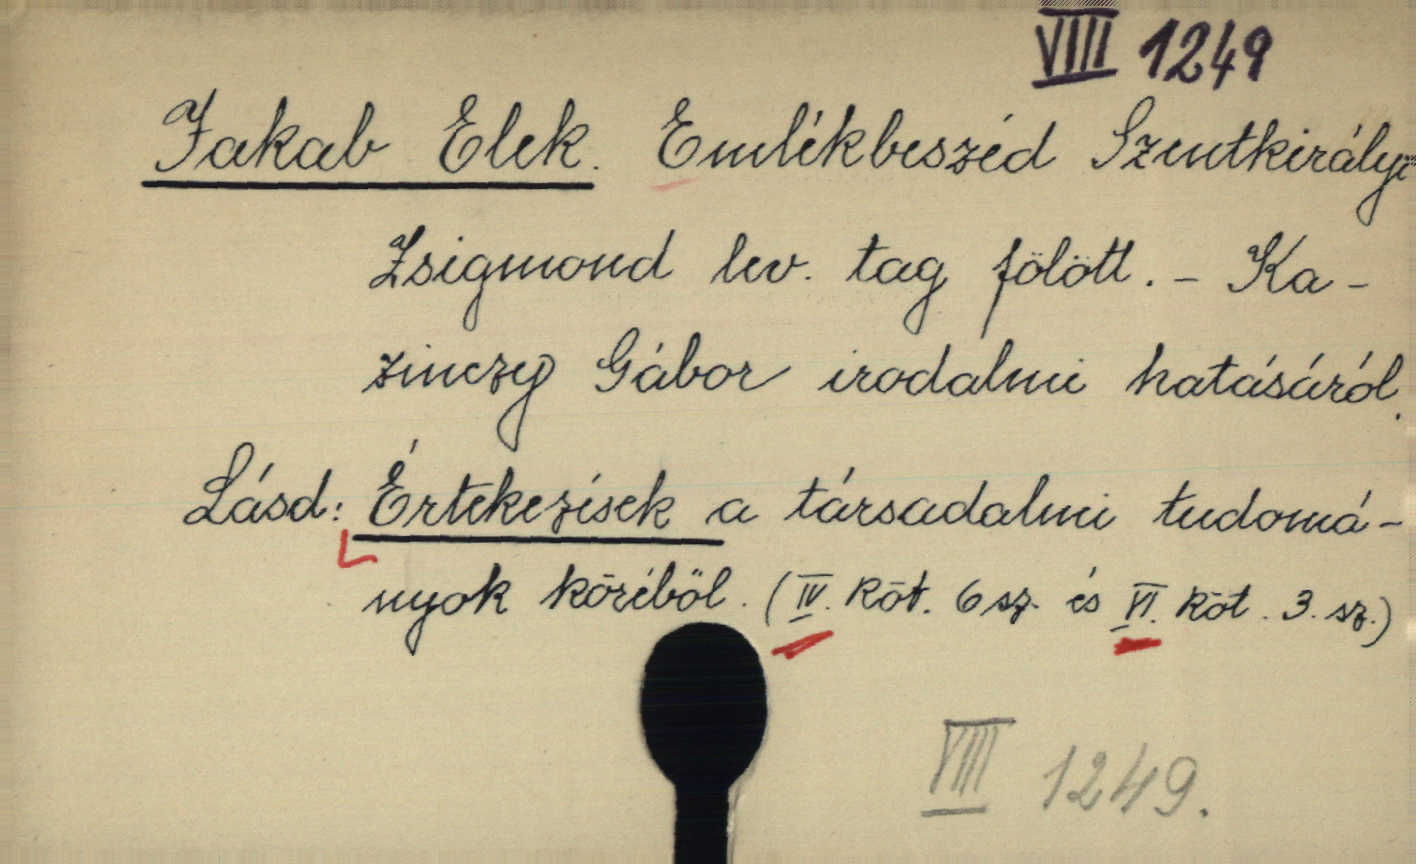 VIIII 1249
Jakab Elek. Emlékbeszéd Szentkirályi
Zsigmond lev. tag fölött. - Ka-
zinczy Gábor irodalmi hatásáról.
Lásd: Értekezések a társadalmi tudomá-
nyok köréből. (IV. köt. 6 sz. és VI. köt. 3. sz.)
VIIII 1249.